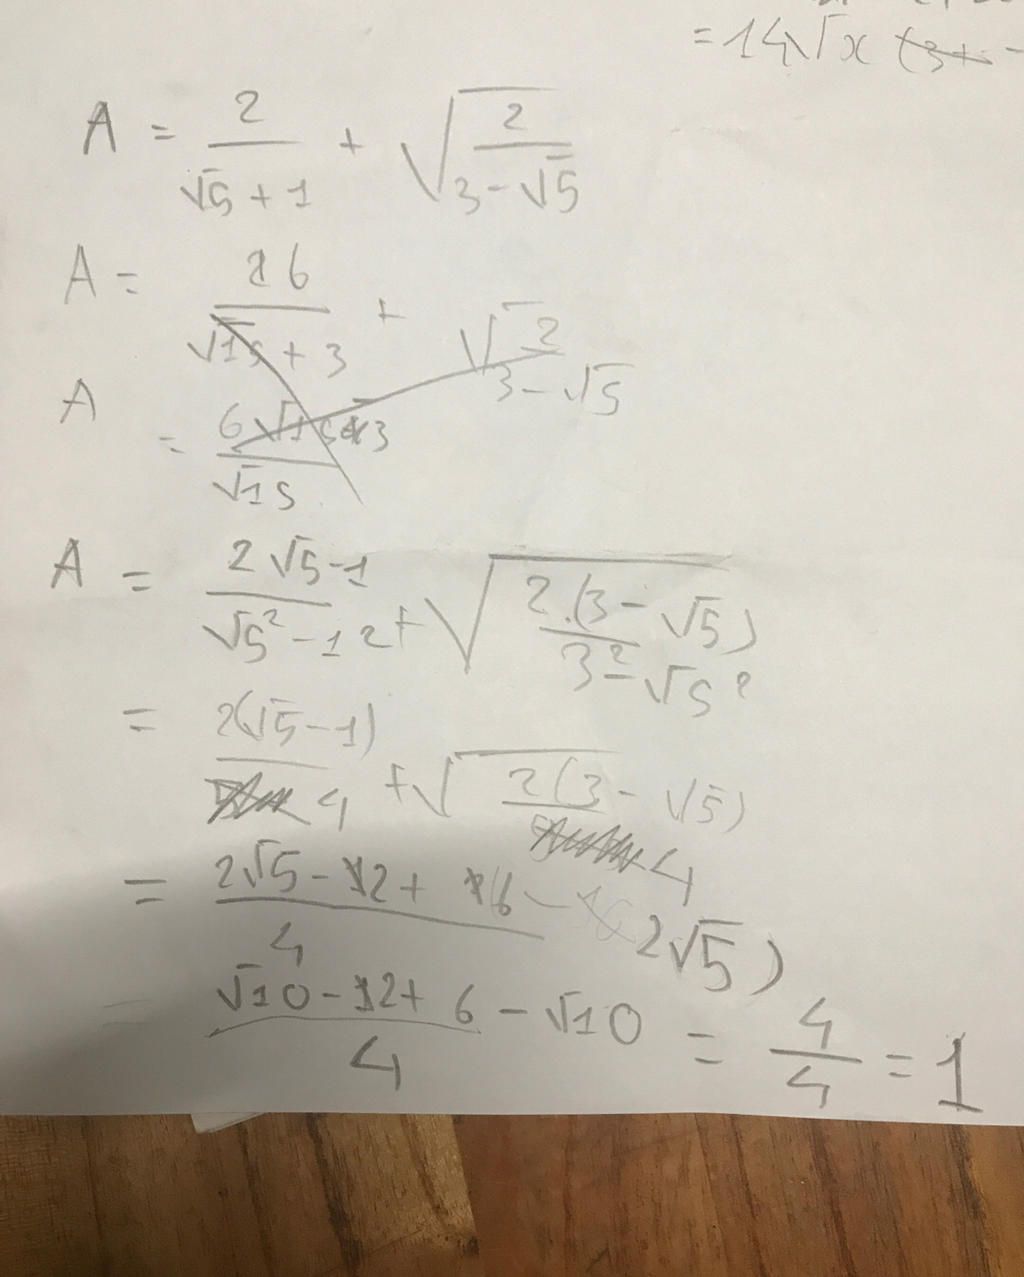 = 14√x (3+ -
A = 2/(√5 + 1) + √(2/(3 - √5))
A = 26/(√15 + 3) + √2/(3 - √5)
A = 6√15 3/√15
A = 2√5-1/(√5² - 1²) + √(2.(3 - √5)/(3² - √5²))
= 2(√5-1)/4 + √(2(3 - √5)/4)
= (2√5 - 2 + 6 - 2√5)/4
= (√10 - 2 + 6 - √10)/4 = 4/4 = 1